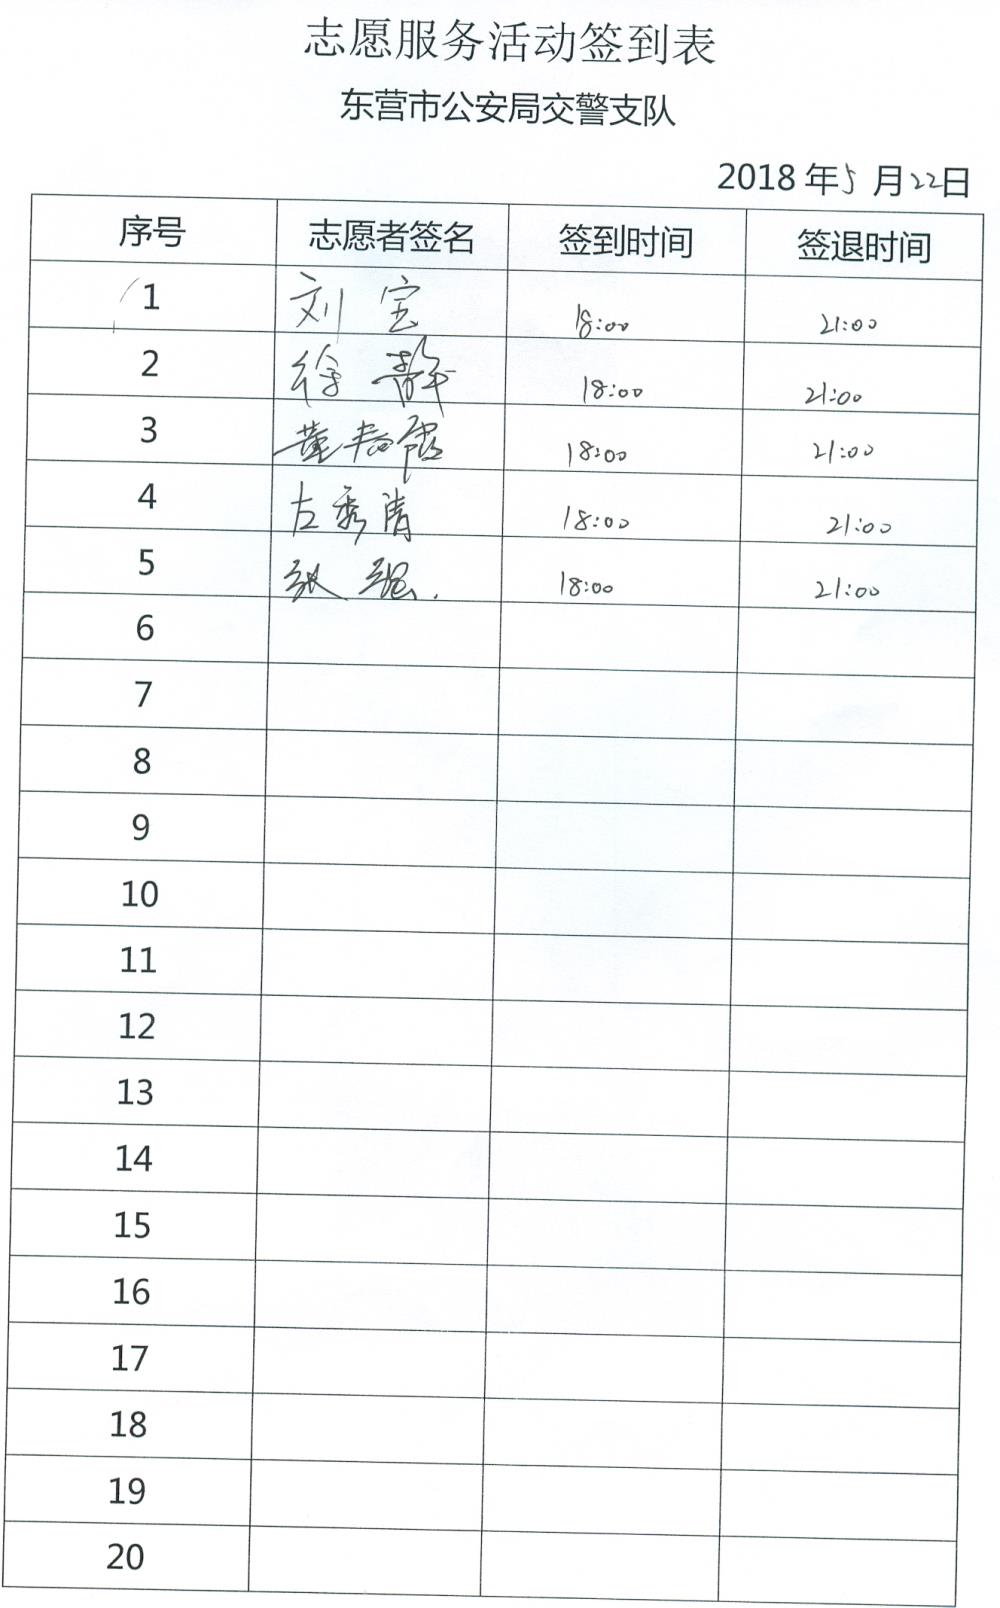 志愿服务活动签到表
东营市公安局交警支队
2018 年 5 月 22 日
序号 志愿者签名 签到时间 签退时间
1 刘宝 18:00 21:00
2 徐静 18:00 21:00
3 董 霞 18:00 21:00
4 左秀清 18:00 21:00
5 张强 18:00 21:00
6
7
8
9
10
11
12
13
14
15
16
17
18
19
20